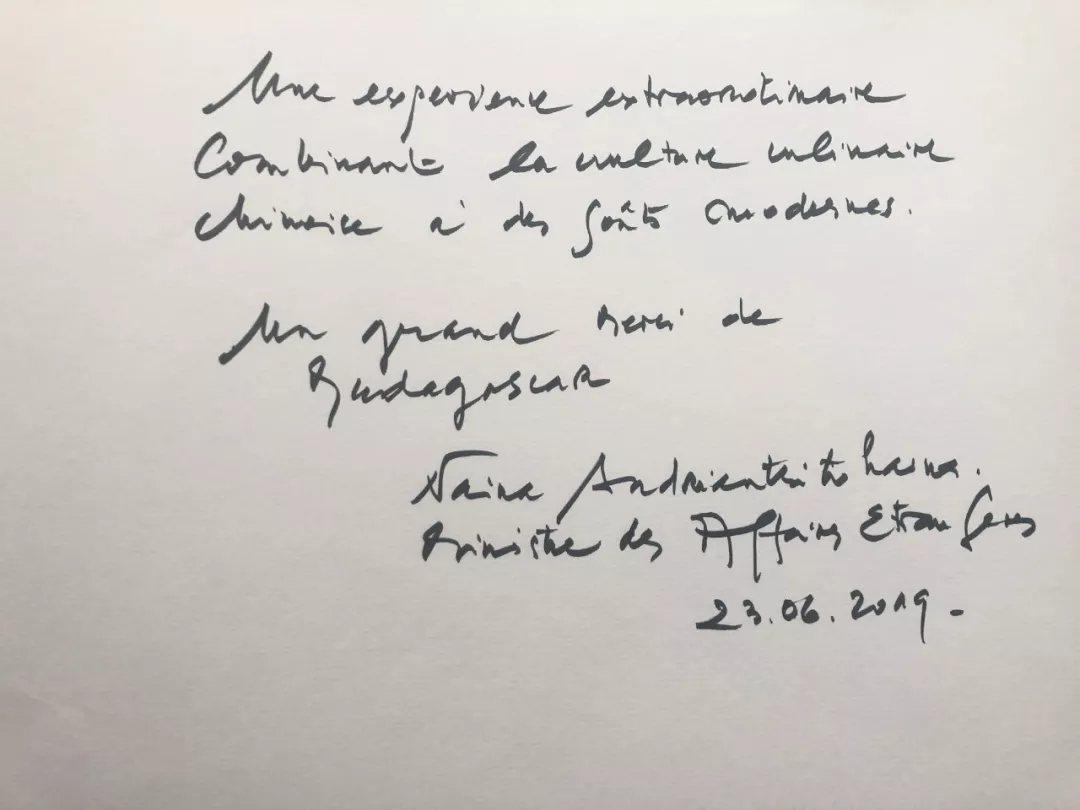 Une experience extraordinaire
Combinant la culture culinaire
chinoise à des goûts modernes.
Un grand merci de
Madagascar
Naina Andriantsitohaina.
Ministre des Affaires Etrangeres
23.06.2019.